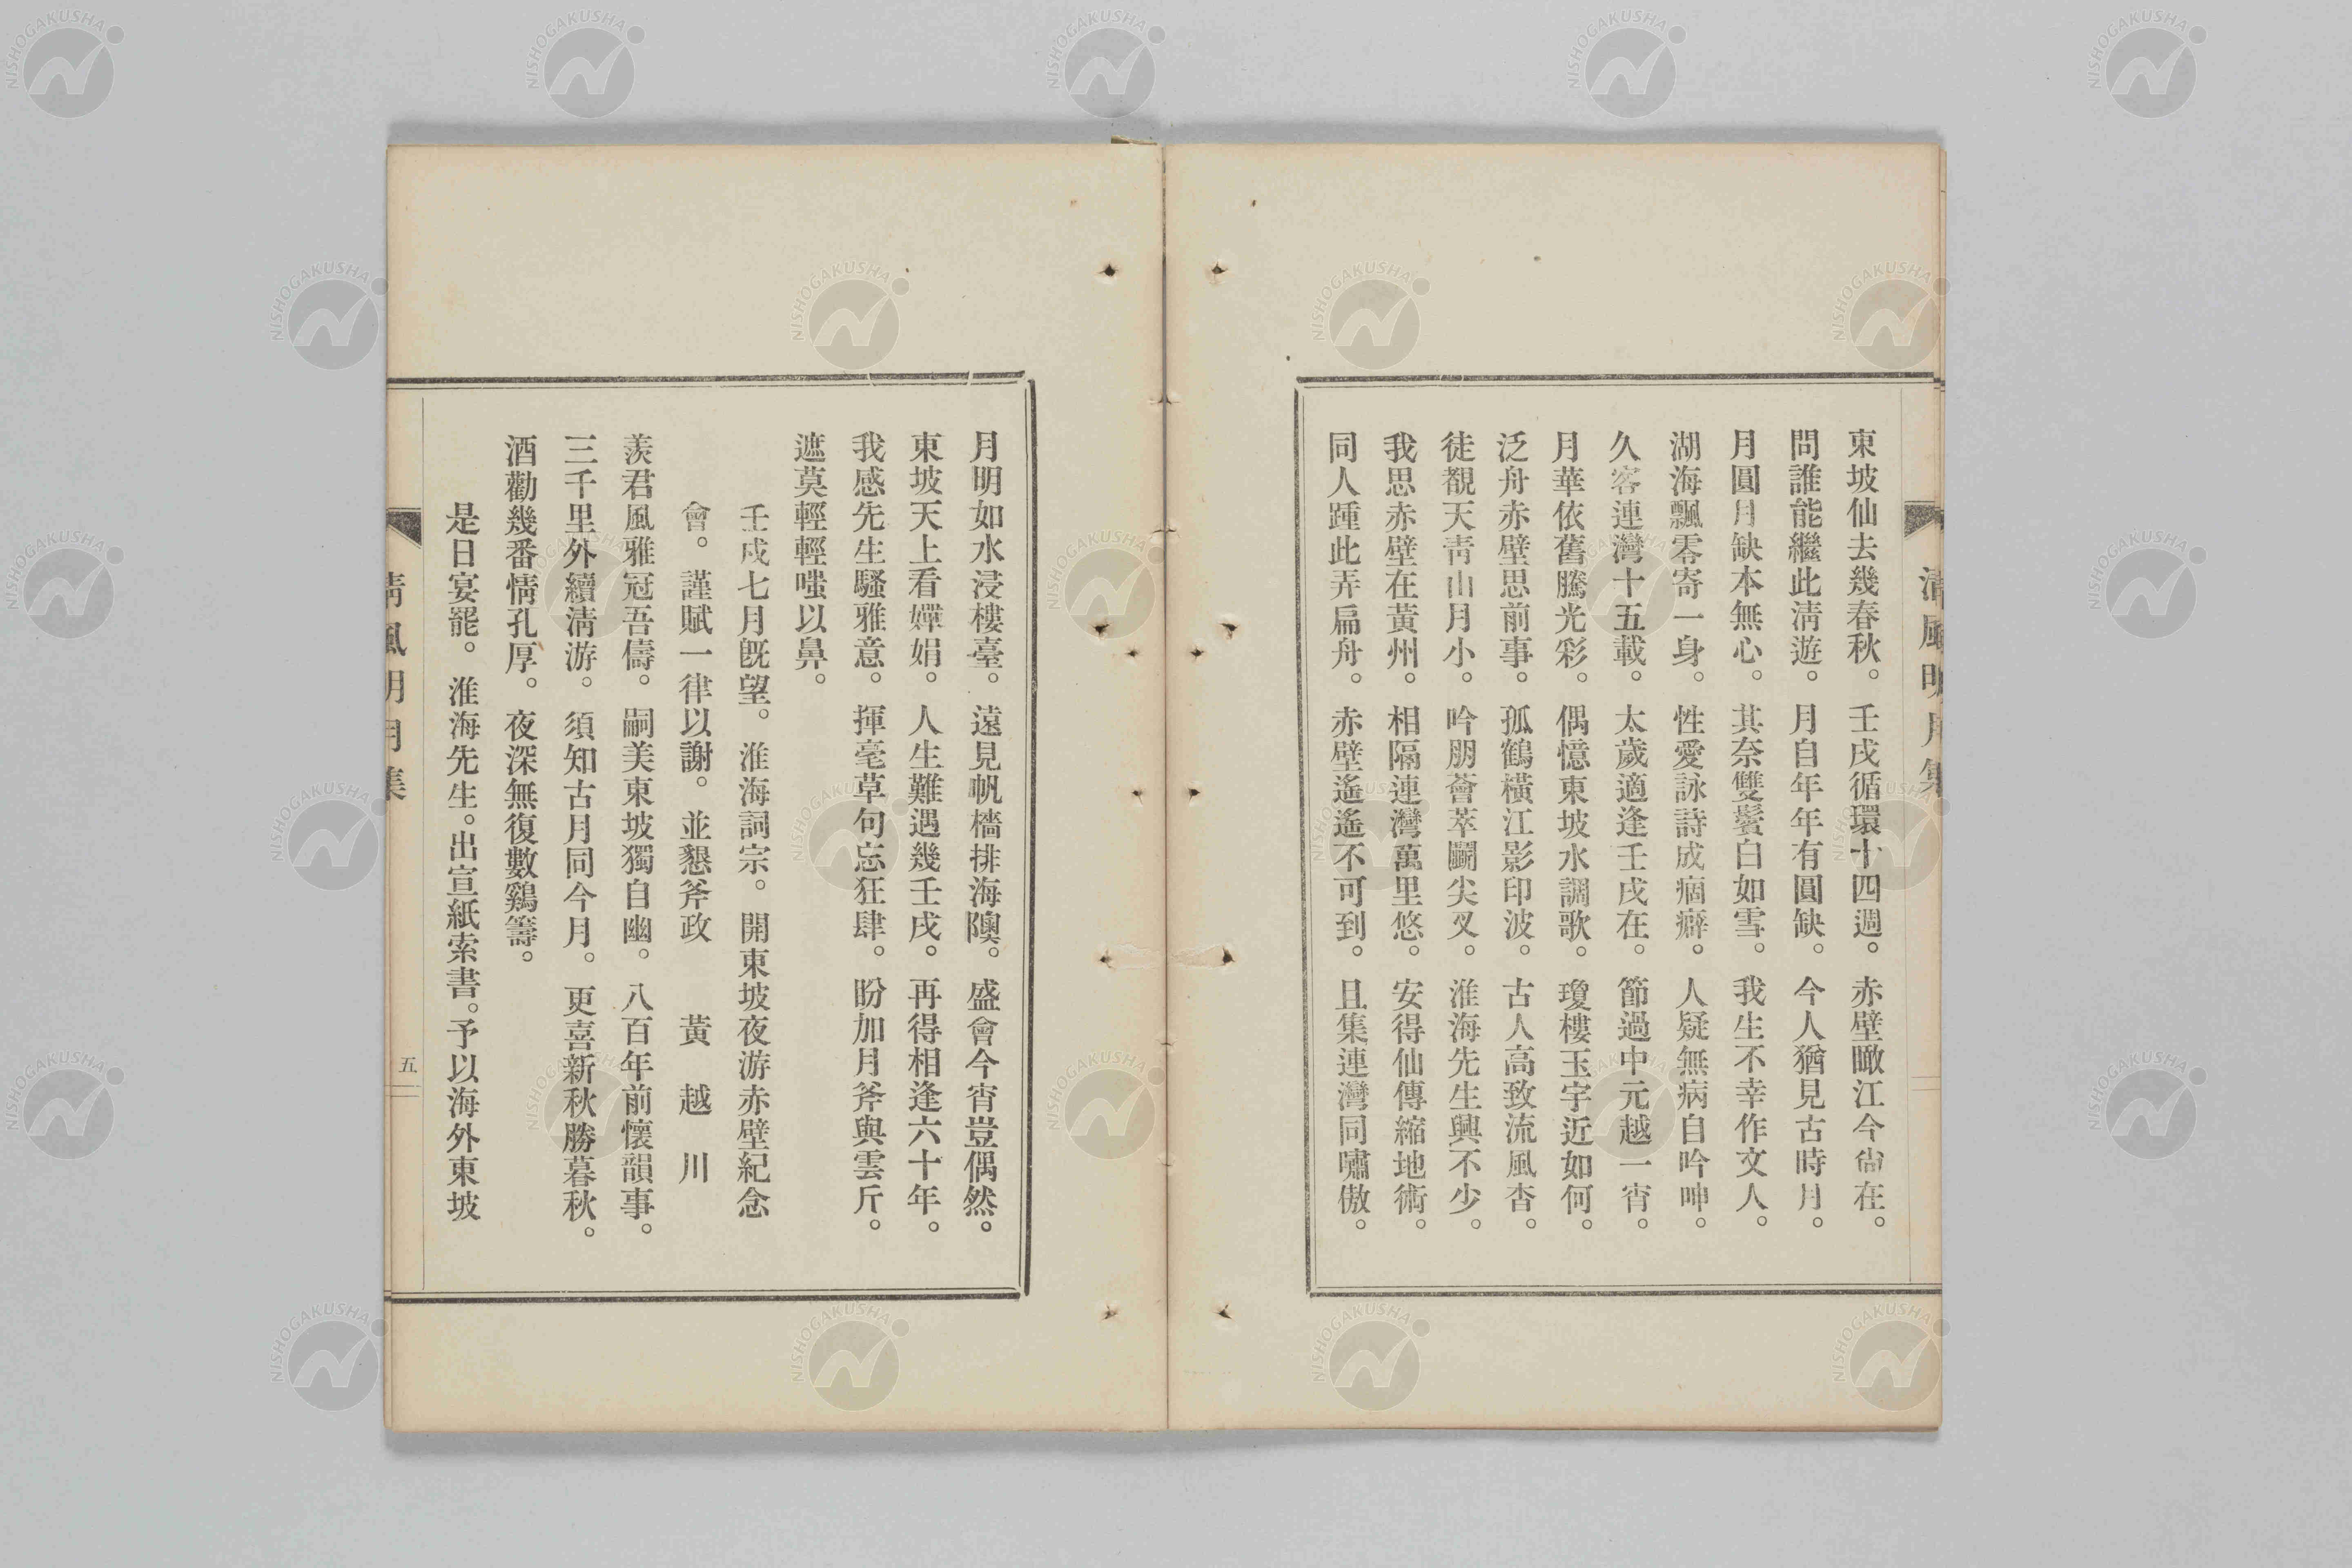 清風明月集
東坡仙去幾春秋。壬戌循環十四週。赤壁瞰江今尙在。
問誰能繼此淸遊。月自年年有圓缺。今人猶見古時月。
月圓月缺本無心。其奈雙鬢白如雪。我生不幸作文人。
湖海飄零寄一身。性愛詠詩成痼癖。人疑無病自吟呻。
久客連灣十五載。太歲適逢壬戌在。節過中元越一宵。
月華依舊騰光彩。偶憶東坡水調歌。瓊樓玉宇近如何。
泛舟赤壁思前事。孤鶴橫江影印波。古人高致流風杳。
徒覩天靑山月小。吟朋薈萃鬭尖叉。淮海先生興不少。
我思赤壁在黃州。相隔連灣萬里悠。安得仙傳縮地術。
同人踵此弄扁舟。赤壁遙遙不可到。且集連灣同嘯傲。
月明如水浸樓臺。遠見帆檣排海隩。盛會今宵豈偶然。
東坡天上看嬋娟。人生難遇幾壬戌。再得相逢六十年。
我感先生騷雅意。揮毫草句忘狂肆。盼加月斧與雲斤。
遮莫輕輕嗤以鼻。
壬戌七月旣望。淮海詞宗。開東坡夜游赤壁紀念
會。謹賦一律以謝。並懇斧政　黃越川
羨君風雅冠吾儔。嗣美東坡獨自幽。八百年前懷韻事。
三千里外續淸游。須知古月同今月。更喜新秋勝暮秋。
酒勸幾番情孔厚。夜深無復數鷄籌。
是日宴罷。淮海先生。出宣紙索書。予以海外東坡
淸風明月集
五
NISHOGAKUSHA